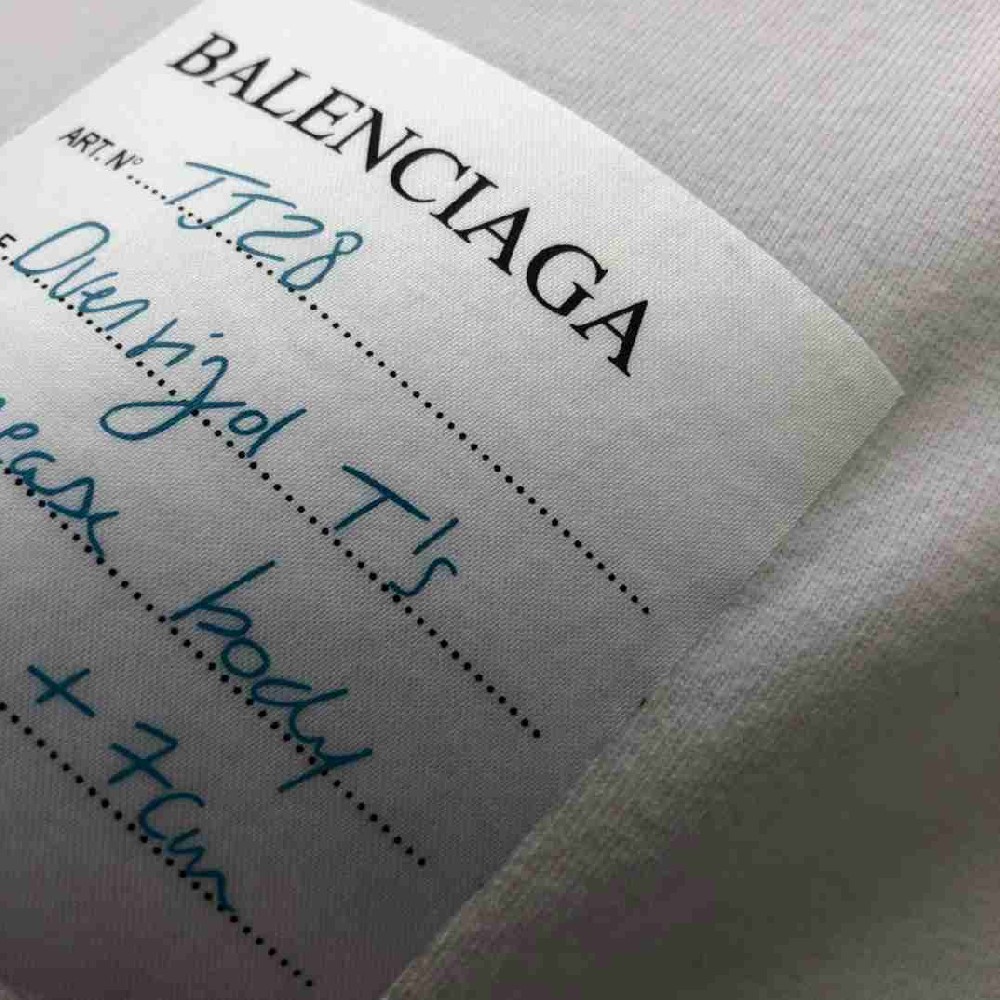 BALENCIAGA
ART. Nº TJ28
E. Oversizd T's
ease body
+ 7cm